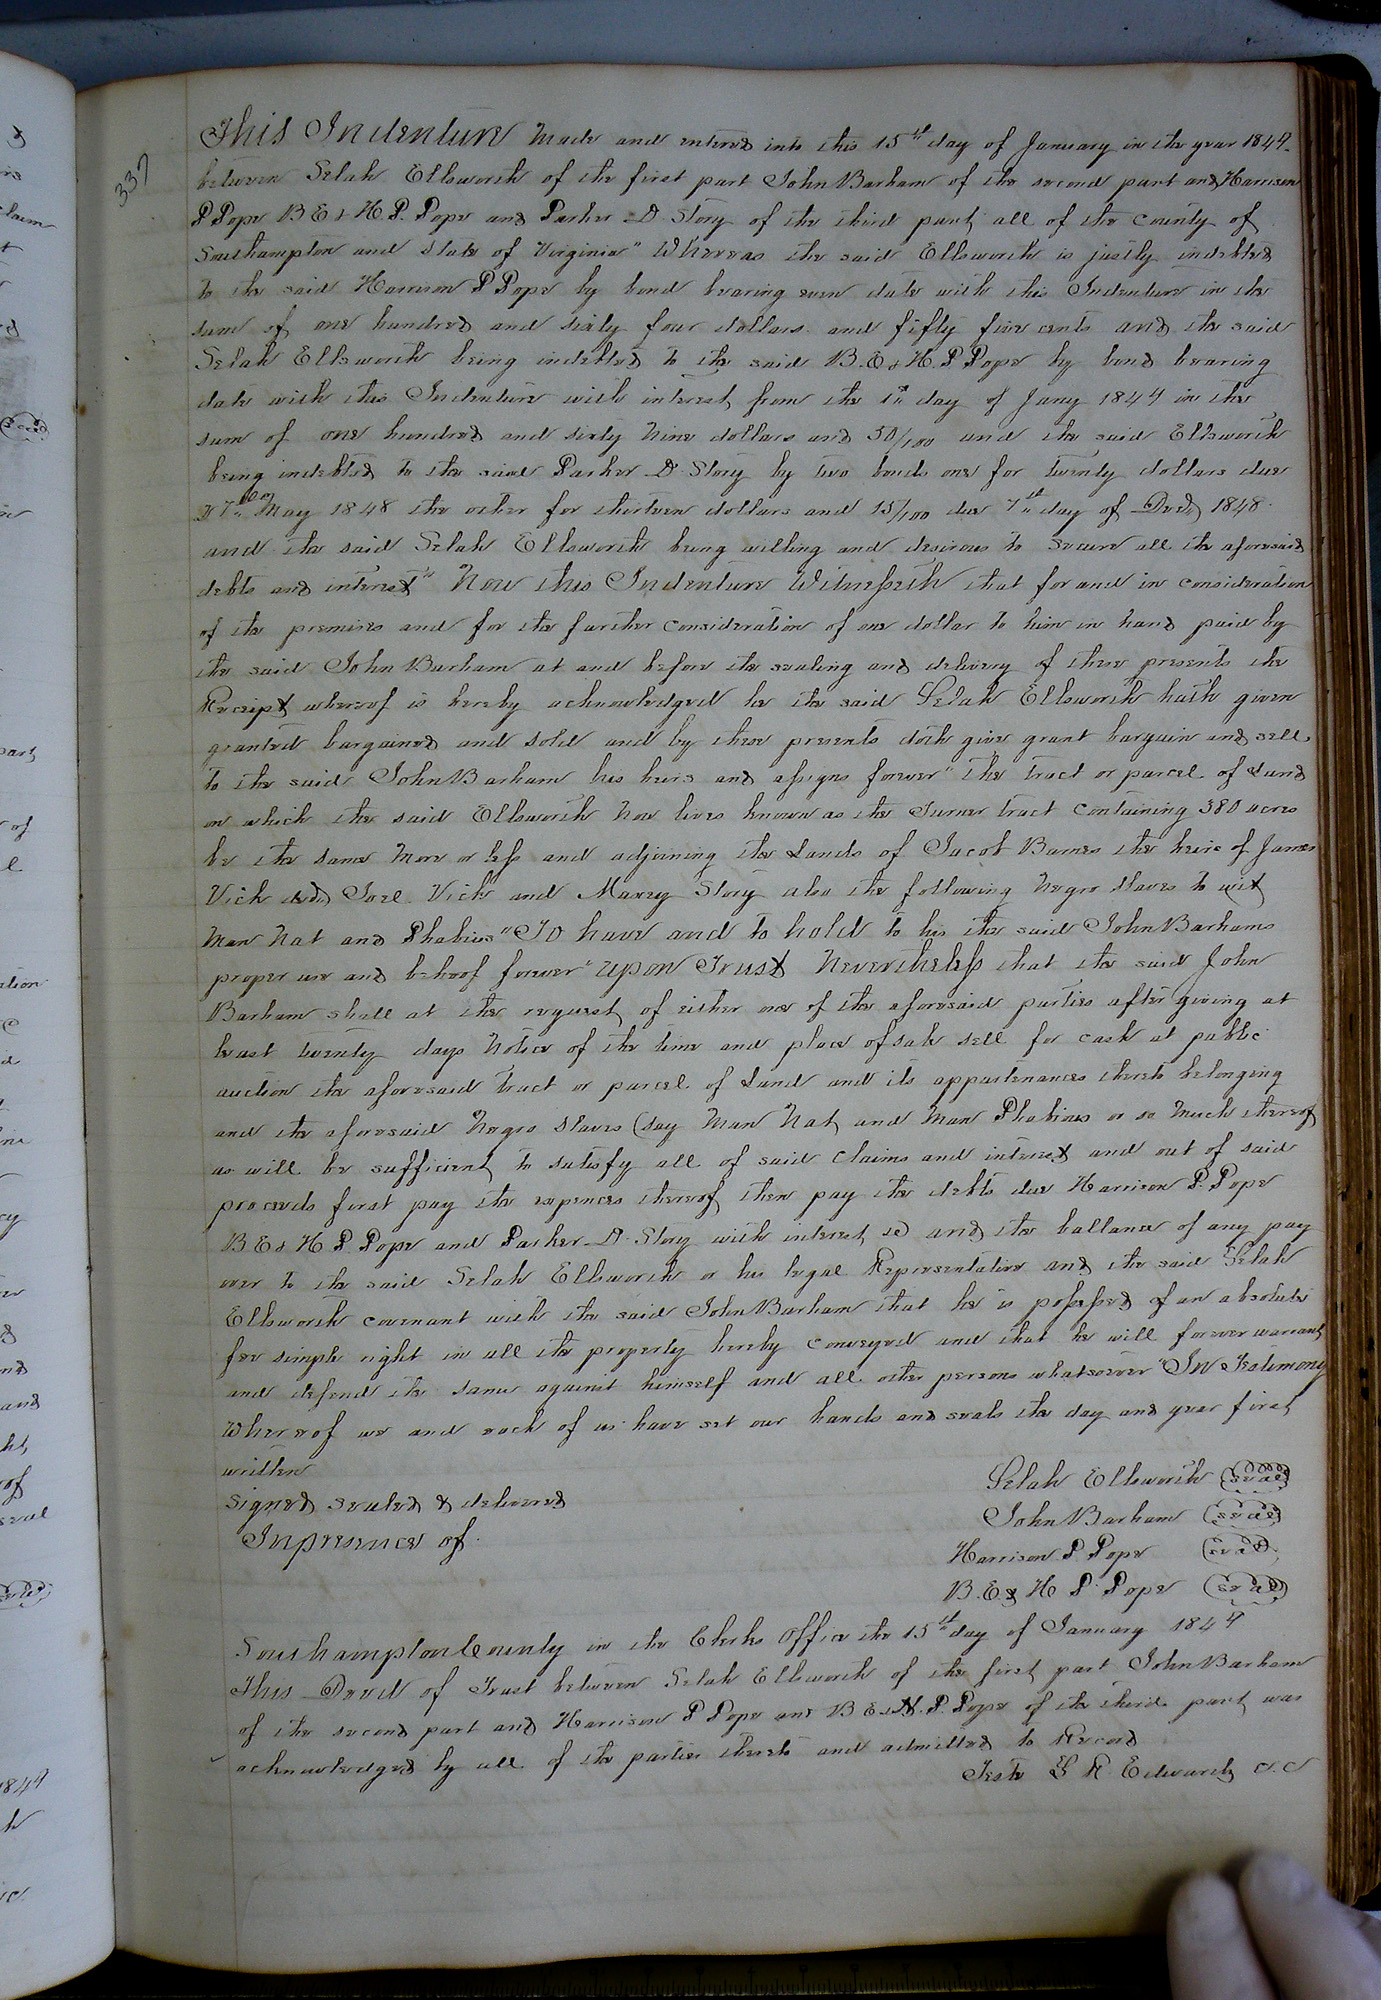 337
This Indenture Made and entered into this 15th day of January in the year 1849
between Selah Ellsworth of the first part John Barham of the second part and Harrison
P Pope B E & H. P. Pope and Parker D. Story of the third part, all of the County of
Southampton and State of Virginia" Whereas the said Ellsworth is justly indebted
to the said Harrison P Pope by bond bearing even date with this Indenture in the
sum of one hundred and sixty four dollars and fifty five cents and the said
Selah Ellsworth being indebted to the said B. E & H. P Pope by bond bearing
date with this Indenture with interest from the 1st day of Jany 1849 in the
sum of one hundred and sixty Nine dollars and 50/100 and the said Ellsworth
being indebted to the said Parker D Story by two bonds one for twenty dollars due
27th May 1848 the other for thirteen dollars and 15/100 due 7th day of Decr 1848.
and the said Selah Ellsworth being willing and desirous to Secure all the aforesaid
debts and interest" Now this Indenture Witnesseth that for and in consideration
of the premises and for the further Consideration of one dollar to him in hand paid by
the said John Barham at and before the sealing and delivery of these presents the
Receipt whereof is hereby acknowledged he the said Selah Ellsworth hath given
granted bargained and Sold and by these presents doth give grant bargain and sell
to the said John Barham his heirs and assigns forever" the tract or parcel of Land
on which the said Ellsworth Now lives known as the Turner tract Containing 380 acres
be the Same More or less and adjoining the Lands of Jacob Barnes the heirs of James
Vick decd, Joel Vick and Maxey Story also the following Negro Slaves to wit
Man Nat and Phabius" To have and to hold to his the said John Barhams
proper use and behoof forever" upon Trust Nevertheless that the said John
Barham shall at the request of either one of the aforesaid parties after giving at
least twenty days Notice of the time and place of sale sell for cash at public
auction the aforesaid tract or parcel of Land and its appurtenances thereto belonging
and the aforesaid Negro Slaves (say Man Nat, and Man Phabius or so Much thereof
as will be sufficient to satisfy all of said Claims and interest and out of said
proceeds first pay the expences thereof, then pay the debts due Harrison P. Pope
B E & H P Pope and Parker D. Story with interest, &c and the ballance if any pay
over to the said Selah Ellsworth or his legal Representative and the said Selah
Ellsworth covenant with the said John Barham that he is possessed of an absolute
fee simple right in all the property hereby Conveyed and that he will forever warrant
and defend the Same against himself and all other persons whatsoever "In Testimony
Whereof we and each of us have set our hands and seals the day and year first
written
Signed, Sealed & delivered
In presence of.
Selah Ellsworth (seal)
John Barham (seal)
Harrison P. Pope (seal)
B. E. & H P. Pope (seal)
Southampton County in the Clerks Office the 15th day of January 1849
This Deed of Trust between Selah Ellsworth of the first part John Barham
of the second part and Harrison P Pope and B E & H. P. Pope of the third part, was
acknowledged by all of the parties thereto and admitted to Record
Teste L R Edwards C. C